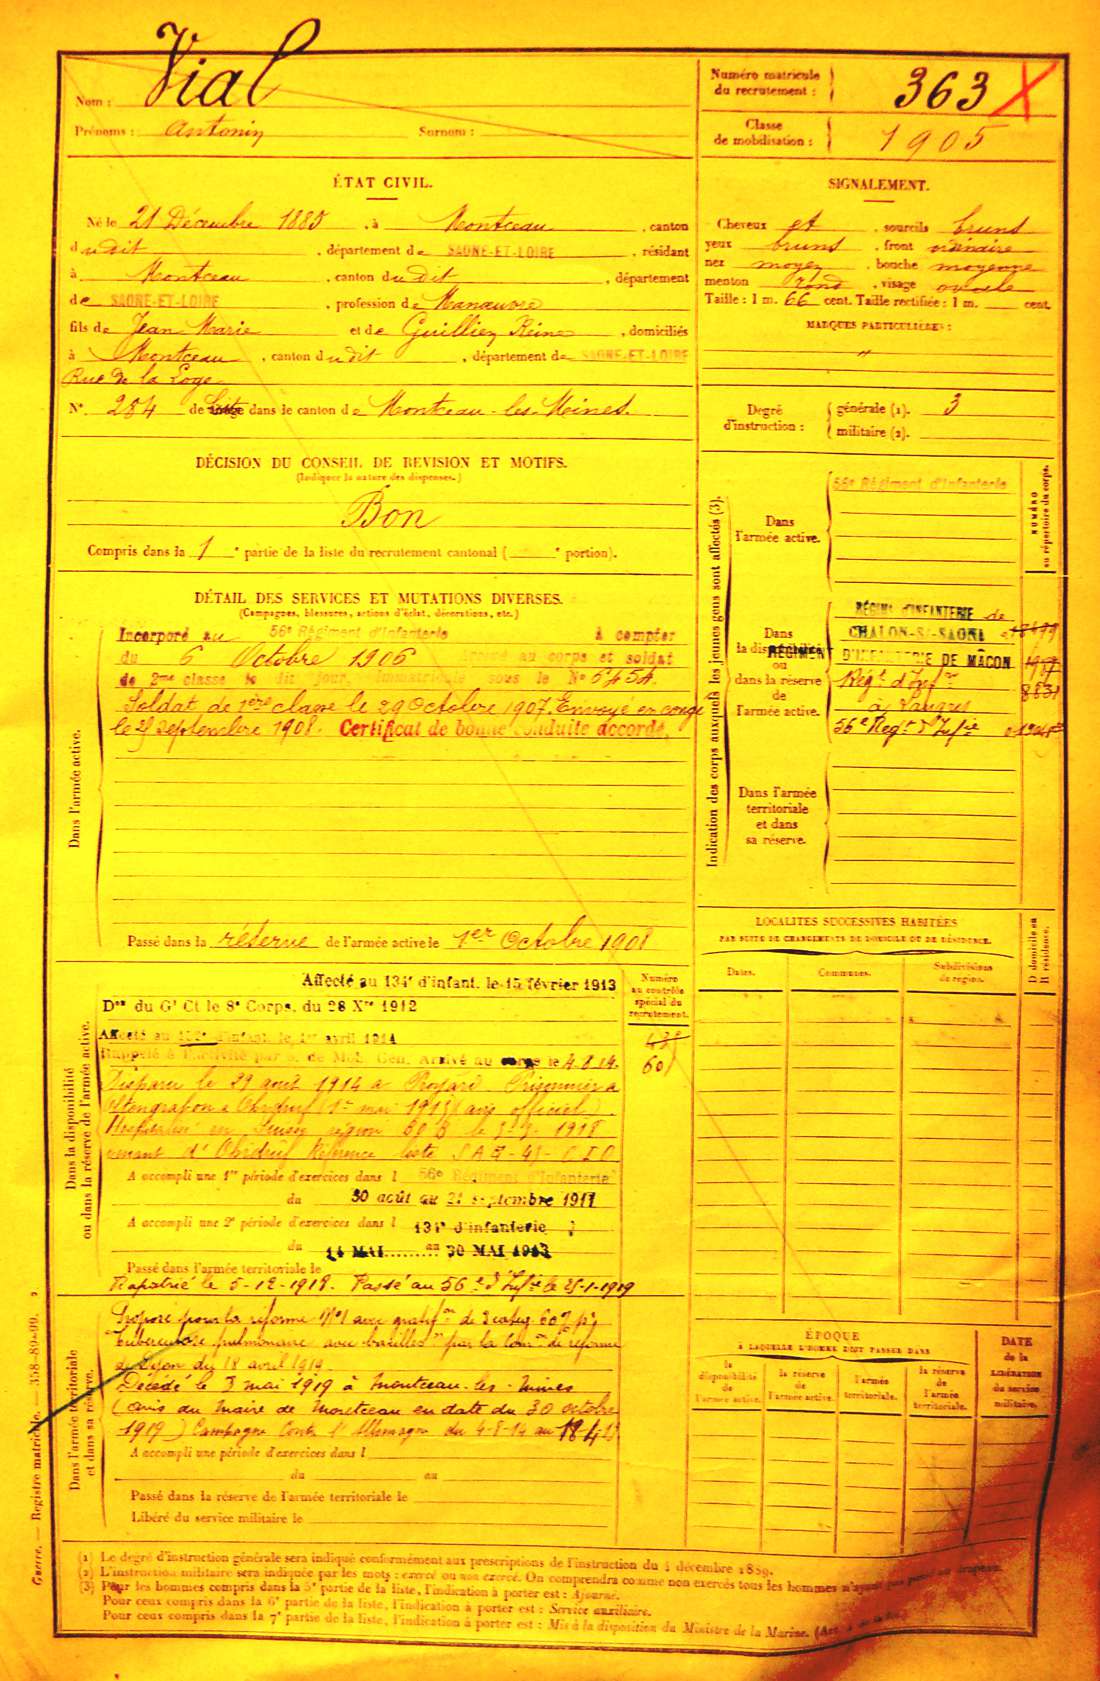 Nom : Vial
Prénoms : Antonin Surnom :
Numéro matricule
du recrutement : 363 X
Classe
de mobilisation : 1905
ÉTAT CIVIL.
Né le 21 Décembre 1885, à Montceau, canton
dudit, département de SAÔNE-ET-LOIRE, résidant
à Montceau, canton dudit, département
de SAÔNE-ET-LOIRE, profession de Manœuvre
fils de Jean Marie et de Guilliez Reine, domiciliés
à Montceau, canton dudit, département de SAÔNE-ET-LOIRE
Rue de la Loge
N° 284 de Liste dans le canton de Montceau-les-Mines.
SIGNALEMENT.
Cheveux et, sourcils bruns
yeux bruns, front ordinaire
nez moyen, bouche moyenne
menton rond, visage ovale
Taille : 1 m. 66 cent. Taille rectifiée : 1 m. cent.
MARQUES PARTICULIÈRES :
"
Degré
d'instruction :
générale (1). 3
militaire (2).
DÉCISION DU CONSEIL DE REVISION ET MOTIFS.
(Indiquer la nature des dispenses.)
Bon
Compris dans la 1e partie de la liste du recrutement cantonal ( e portion).
DÉTAIL DES SERVICES ET MUTATIONS DIVERSES.
(Campagnes, blessures, actions d'éclat, décorations, etc.)
Dans l'armée active.
Incorporé au 56e Régiment d'Infanterie à compter
du 6 Octobre 1906 au corps et soldat
de 2me classe le dit jour, Immatriculé sous le No 5454.
Soldat de 1ère classe le 29 Octobre 1907. Envoyé en congé
le 25 Septembre 1908. Certificat de bonne conduite accordé.
Passé dans la réserve de l'armée active le 1er Octobre 1908
Indication des corps auxquels les jeunes gens sont affectés (3).
NUMÉRO
au répertoire du corps.
Dans
l'armée active.
56e Régiment d'Infanterie
Dans
la disponibilité
ou
dans la réserve
de
l'armée active.
RÉGIMt D'INFANTERIE de
CHALON-S/-SAONE
RÉGIMENT D'INFANTERIE DE MÂCON
Régt d'Infie
à Langres
56e Regt d'Infie
Dans l'armée
territoriale
et dans
sa réserve.
LOCALITÉS SUCCESSIVES HABITÉES
PAR SUITE DE CHANGEMENTS DE DOMICILE OU DE RÉSIDENCE.
Dates. Communes. Subdivisions
de région.
D domicile ou
R résidence.
Dans la disponibilité
ou dans la réserve de l'armée active.
Numéro
au contrôle
spécial du
recrutement.
Affecté au 134e d'infant. le 15 février 1913
Don du Gl Ct le 8e Corps, du 28 Xre 1912
Affecté au d'infant. le 1er avril 1914
Rappelé à l'activité par o. de Mob. Gén. Arrivé au corps le 4.8.14.
Disparu le 29 août 1914 à Proyard. Prisonnier à
Ohrdruf (1er mai 1915) (avis officiel).
Hospitalisé en Suisse région
venant d'Ohrdruf Référence liste
A accompli une 1re période d'exercices dans l 56e Régiment d'Infanterie
du 30 août au 21 septembre 1911
A accompli une 2e période d'exercices dans l 134e d'infanterie
du 14 MAI au 30 MAI 1913
Passé dans l'armée territoriale le
Rapatrié le 5-12-1918. Passé au 56e d'Infie le 25-1-1919
Dans l'armée territoriale
et dans sa réserve.
Proposé pour la réforme N°1 avec gratifon de
Tuberculose pulmonaire avec bacilles par la Comon de réforme
de Dijon du 18 avril 1919
Décédé le 3 mai 1919 à Montceau-les-Mines
(avis du Maire de Montceau en date du 30 octobre
1919) Campagne Contre l'Allemagne du 4-8-14 au
A accompli une période d'exercices dans l
du au
Passé dans la réserve de l'armée territoriale le
Libéré du service militaire le
ÉPOQUE
À LAQUELLE L'HOMME DOIT PASSER DANS
la
disponibilité
de
l'armée active.
la réserve
de
l'armée active.
l'armée
territoriale.
la réserve
de
l'armée
territoriale.
DATE
de la
LIBÉRATION
du service
militaire.
Guerre. — Registre matricule. — 358-89-99.
(1) Le degré d'instruction générale sera indiqué conformément aux prescriptions de l'instruction du 4 décembre 1889.
(2) L'instruction militaire sera indiquée par les mots : exercé ou non exercé. On comprendra comme non exercés tous les hommes n'ayant pas passé au drapeau.
(3) Pour les hommes compris dans la 5e partie de la liste, l'indication à porter est : Ajourné.
Pour ceux compris dans la 6e partie de la liste, l'indication à porter est : Service auxiliaire.
Pour ceux compris dans la 7e partie de la liste, l'indication à porter est : Mis à la disposition du Ministre de la Marine.